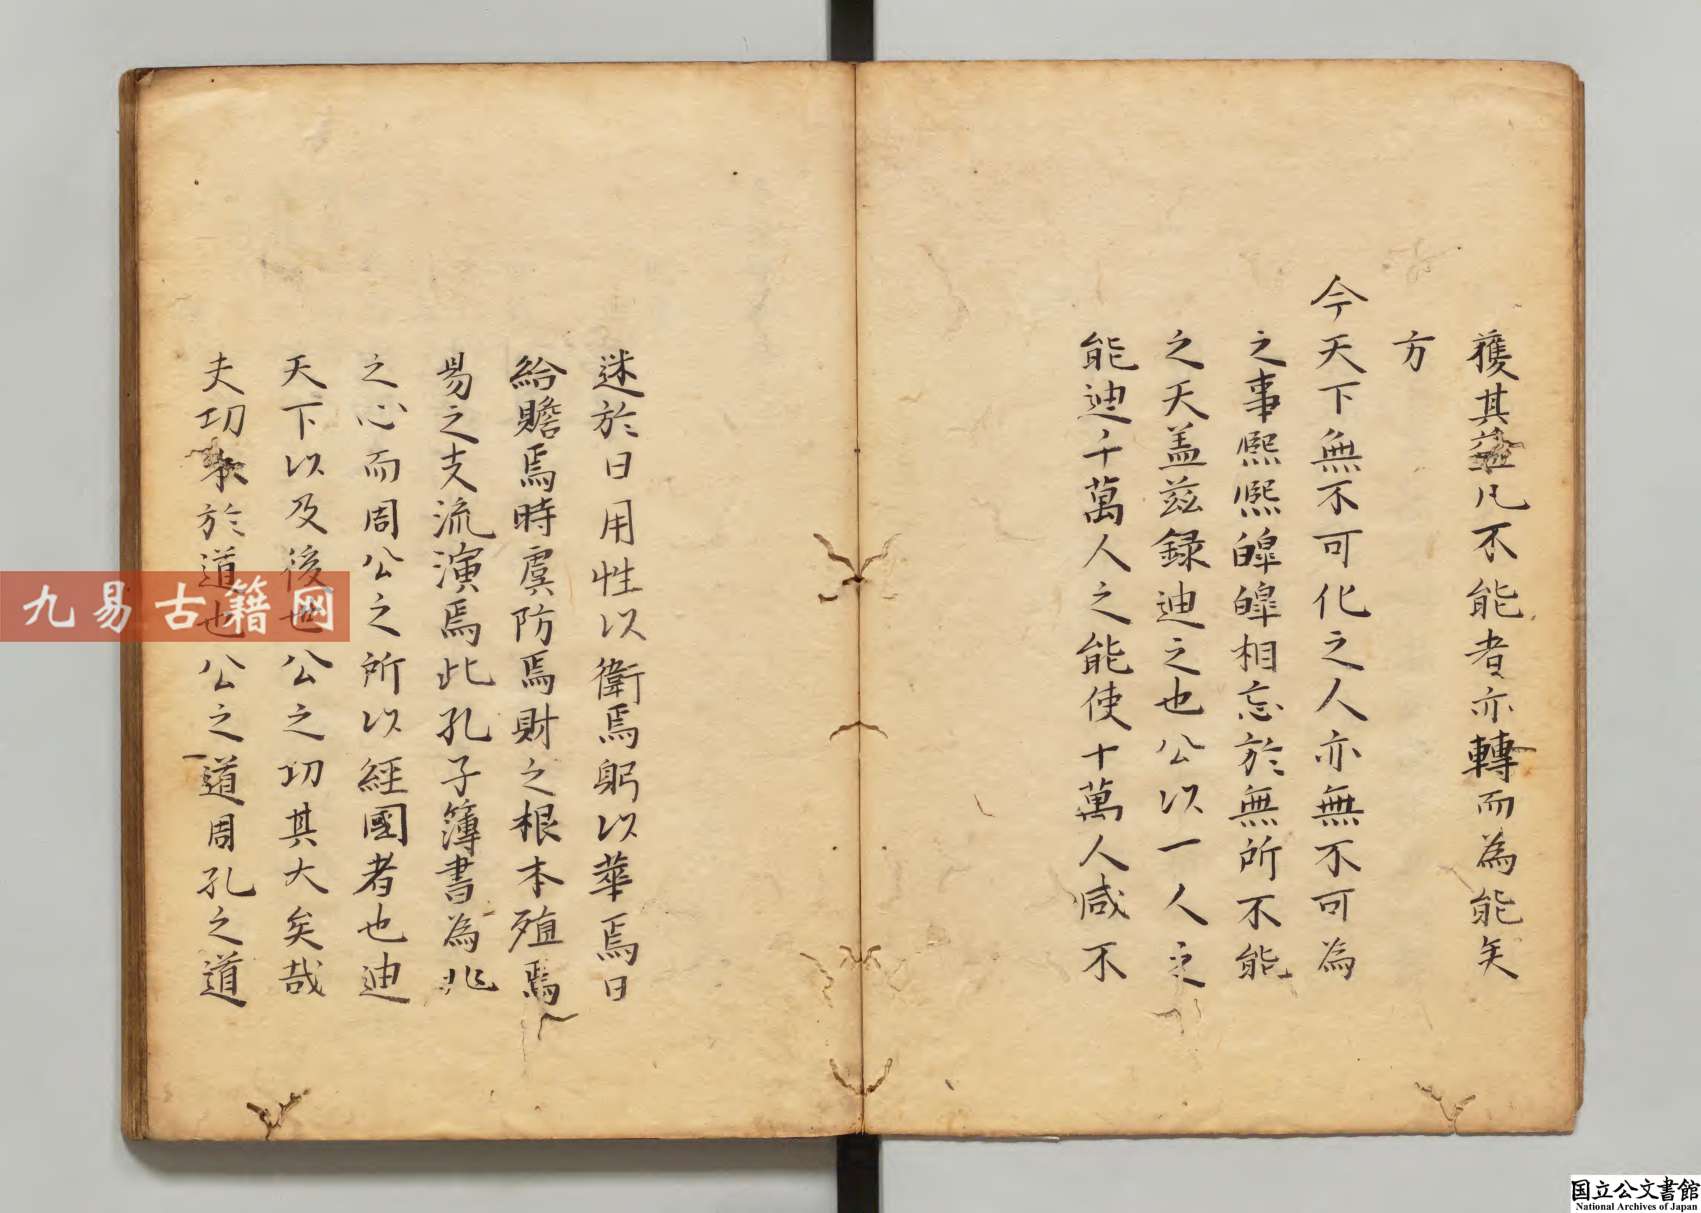 獲其益凡不能者亦轉而為能矣
方
今天下無不可化之人亦無不可為
之事熈熈皞皞相忘於無所不能
之天盖兹録迪之也公以一人之
能迪千萬人之能使十萬人咸不
迷於日用性以衛焉躬以華焉日
給贍焉時虞防焉財之根本殖焉
易之支流演焉此孔子簿書為兆
之心而周公之所以經國者也迪
天下以及後世公之功其大矣哉
夫功本於道也公之道周孔之道
九易古籍网
国立公文書館
National Archives of Japan